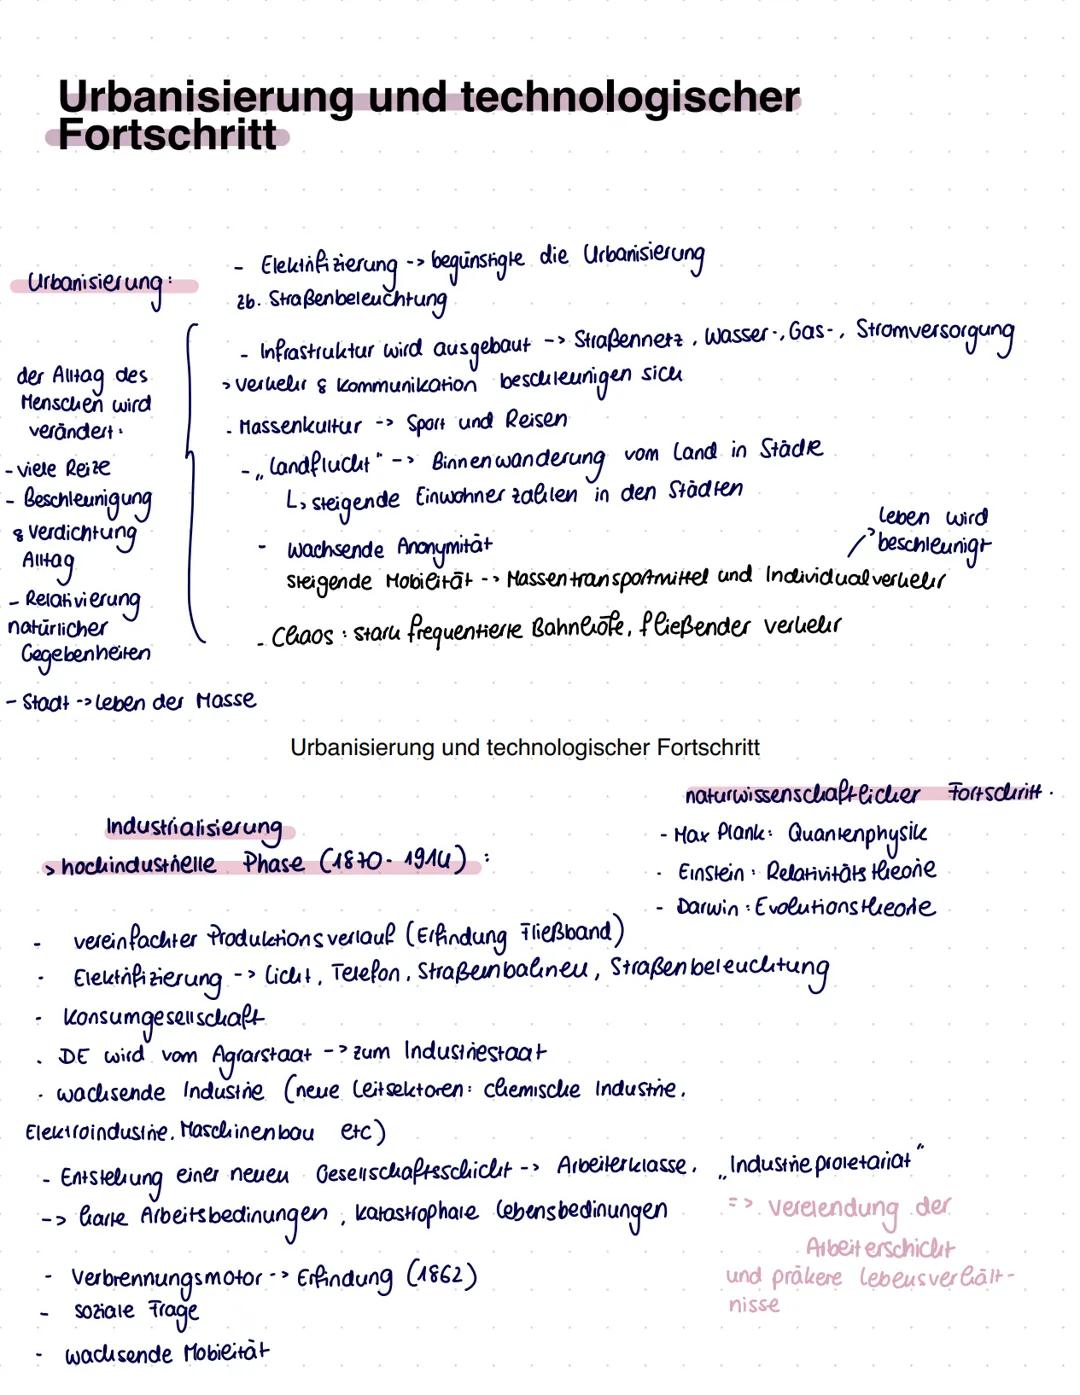 Urbanisierung und technologischer
Fortschritt
Urbanisierung:
der Alltag des
Menschen wird
verändert:
- viele Reize
- Beschleunigung
& Verdichtung
Alltag
- Relativierung
natürlicher
Gegebenheiten
- Stadt -> Leben der Masse
- Elektrifizierung -> begünstigte die Urbanisierung
zb. Straßenbeleuchtung
- Infrastruktur wird ausgebaut -> Straßennetz, Wasser-, Gas-, Stromversorgung
> Verkehr & Kommunikation beschleunigen sich
- Massenkultur -> Sport und Reisen
- „Landflucht" -> Binnenwanderung vom Land in Städte
L> steigende Einwohnerzahlen in den Städten
- wachsende Anonymität
steigende Mobilität -> Massentransportmittel und Individualverkehr
Leben wird
beschleunigt
- Chaos: stark frequentierte Bahnhöfe, fließender verkehr
Urbanisierung und technologischer Fortschritt
naturwissenschaftlicher Fortschritt.
- Max Plank: Quantenphysik
- Einstein: Relativitätstheorie
- Darwin: Evolutionstheorie
Industrialisierung
> hochindustrielle Phase (1870-1914):
- vereinfachter Produktionsverlauf (Erfindung Fließband)
- Elektrifizierung -> Licht, Telefon, Straßeinbahneu, Straßenbeleuchtung
- Konsumgesellschaft
- DE wird vom Agrarstaat -> zum Industriestaat
- wachsende Industrie (neue Leitsektoren: chemische Industrie,
Elektroindustrie, Maschinenbau etc)
- Entstehung einer neuen Gesellschaftsschicht -> Arbeiterklasse, „Industrieproletariat"
-> harte Arbeitsbedinungen, katastrophale Lebensbedinungen
=> Verelendung der
Arbeiterschicht
und präkere Lebensverhält-
nisse
- Verbrennungsmotor -> Erfindung (1862)
- soziale Frage
- wachsende Mobilität